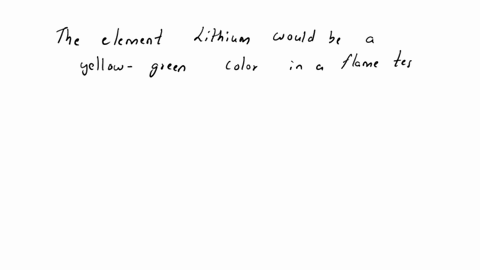 The element Lithium would be a
yellow- green color in a flame tes